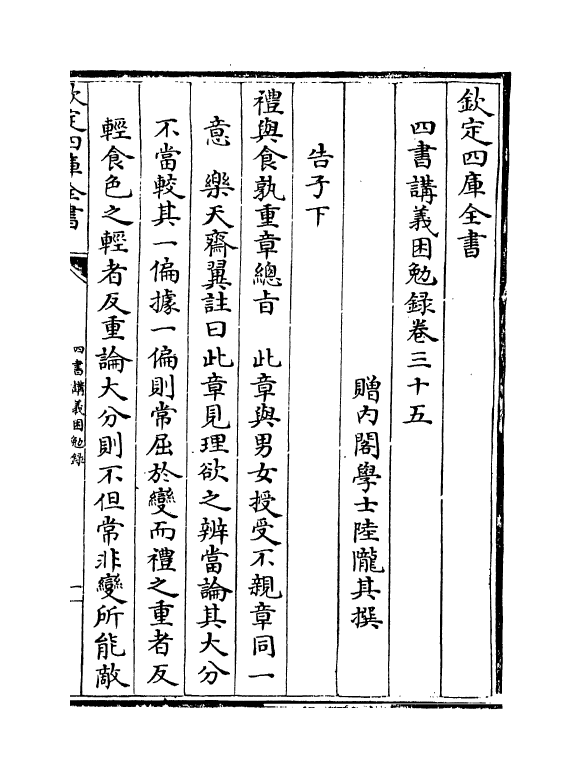 欽定四庫全書
四書講義困勉録卷三十五
贈內閣學士陸隴其撰
告子下
禮與食孰重章總旨　此章與男女授受不親章同一
意　樂天齋翼註曰此章見理欲之辨當論其大分
不當較其一偏據一偏則常屈於變而禮之重者反
輕食色之輕者反重論大分則不但常非變所能敵
欽定四庫全書
四書講義困勉録
一